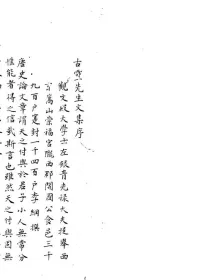 古靈先生文集序
觀文殿大學士左銀青光祿大夫提舉西
京嵩山崇福宮隴西郡開國公食邑三千
九百戶實封一千四百戶李綱撰
唐史論文章謂天之付與於君子小人無常分
惟能者得之信哉斯言也雖然天之付與固無